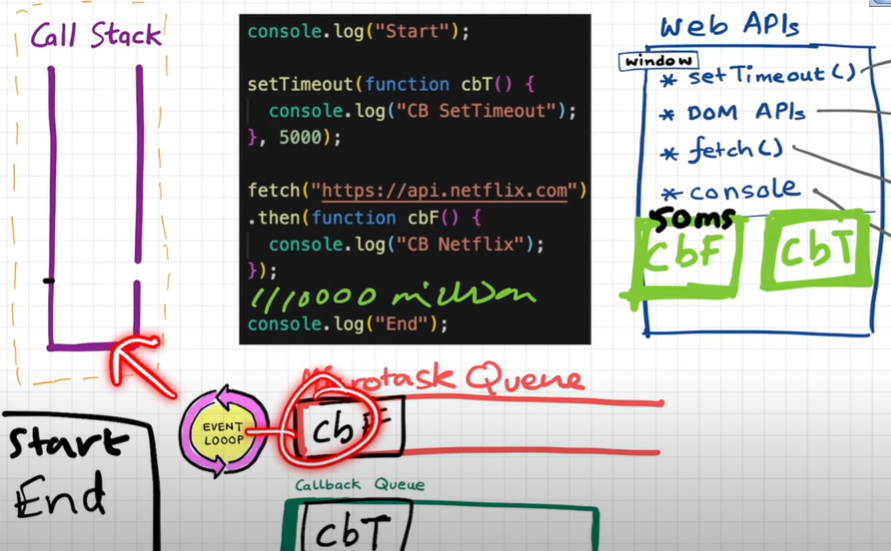 Call Stack
console.log("Start");
setTimeout(function cbT() {
console.log("CB SetTimeout");
}, 5000);
fetch("https://api.netflix.com")
.then(function cbF() {
console.log("CB Netflix");
});
// 10000 million
console.log("End");
Web APIs
window
* setTimeout()
* DOM APIs
* fetch()
* console
50ms
cbF
cbT
Microtask Queue
EVENT
LOOOP
cbF
Start
End
Callback Queue
cbT